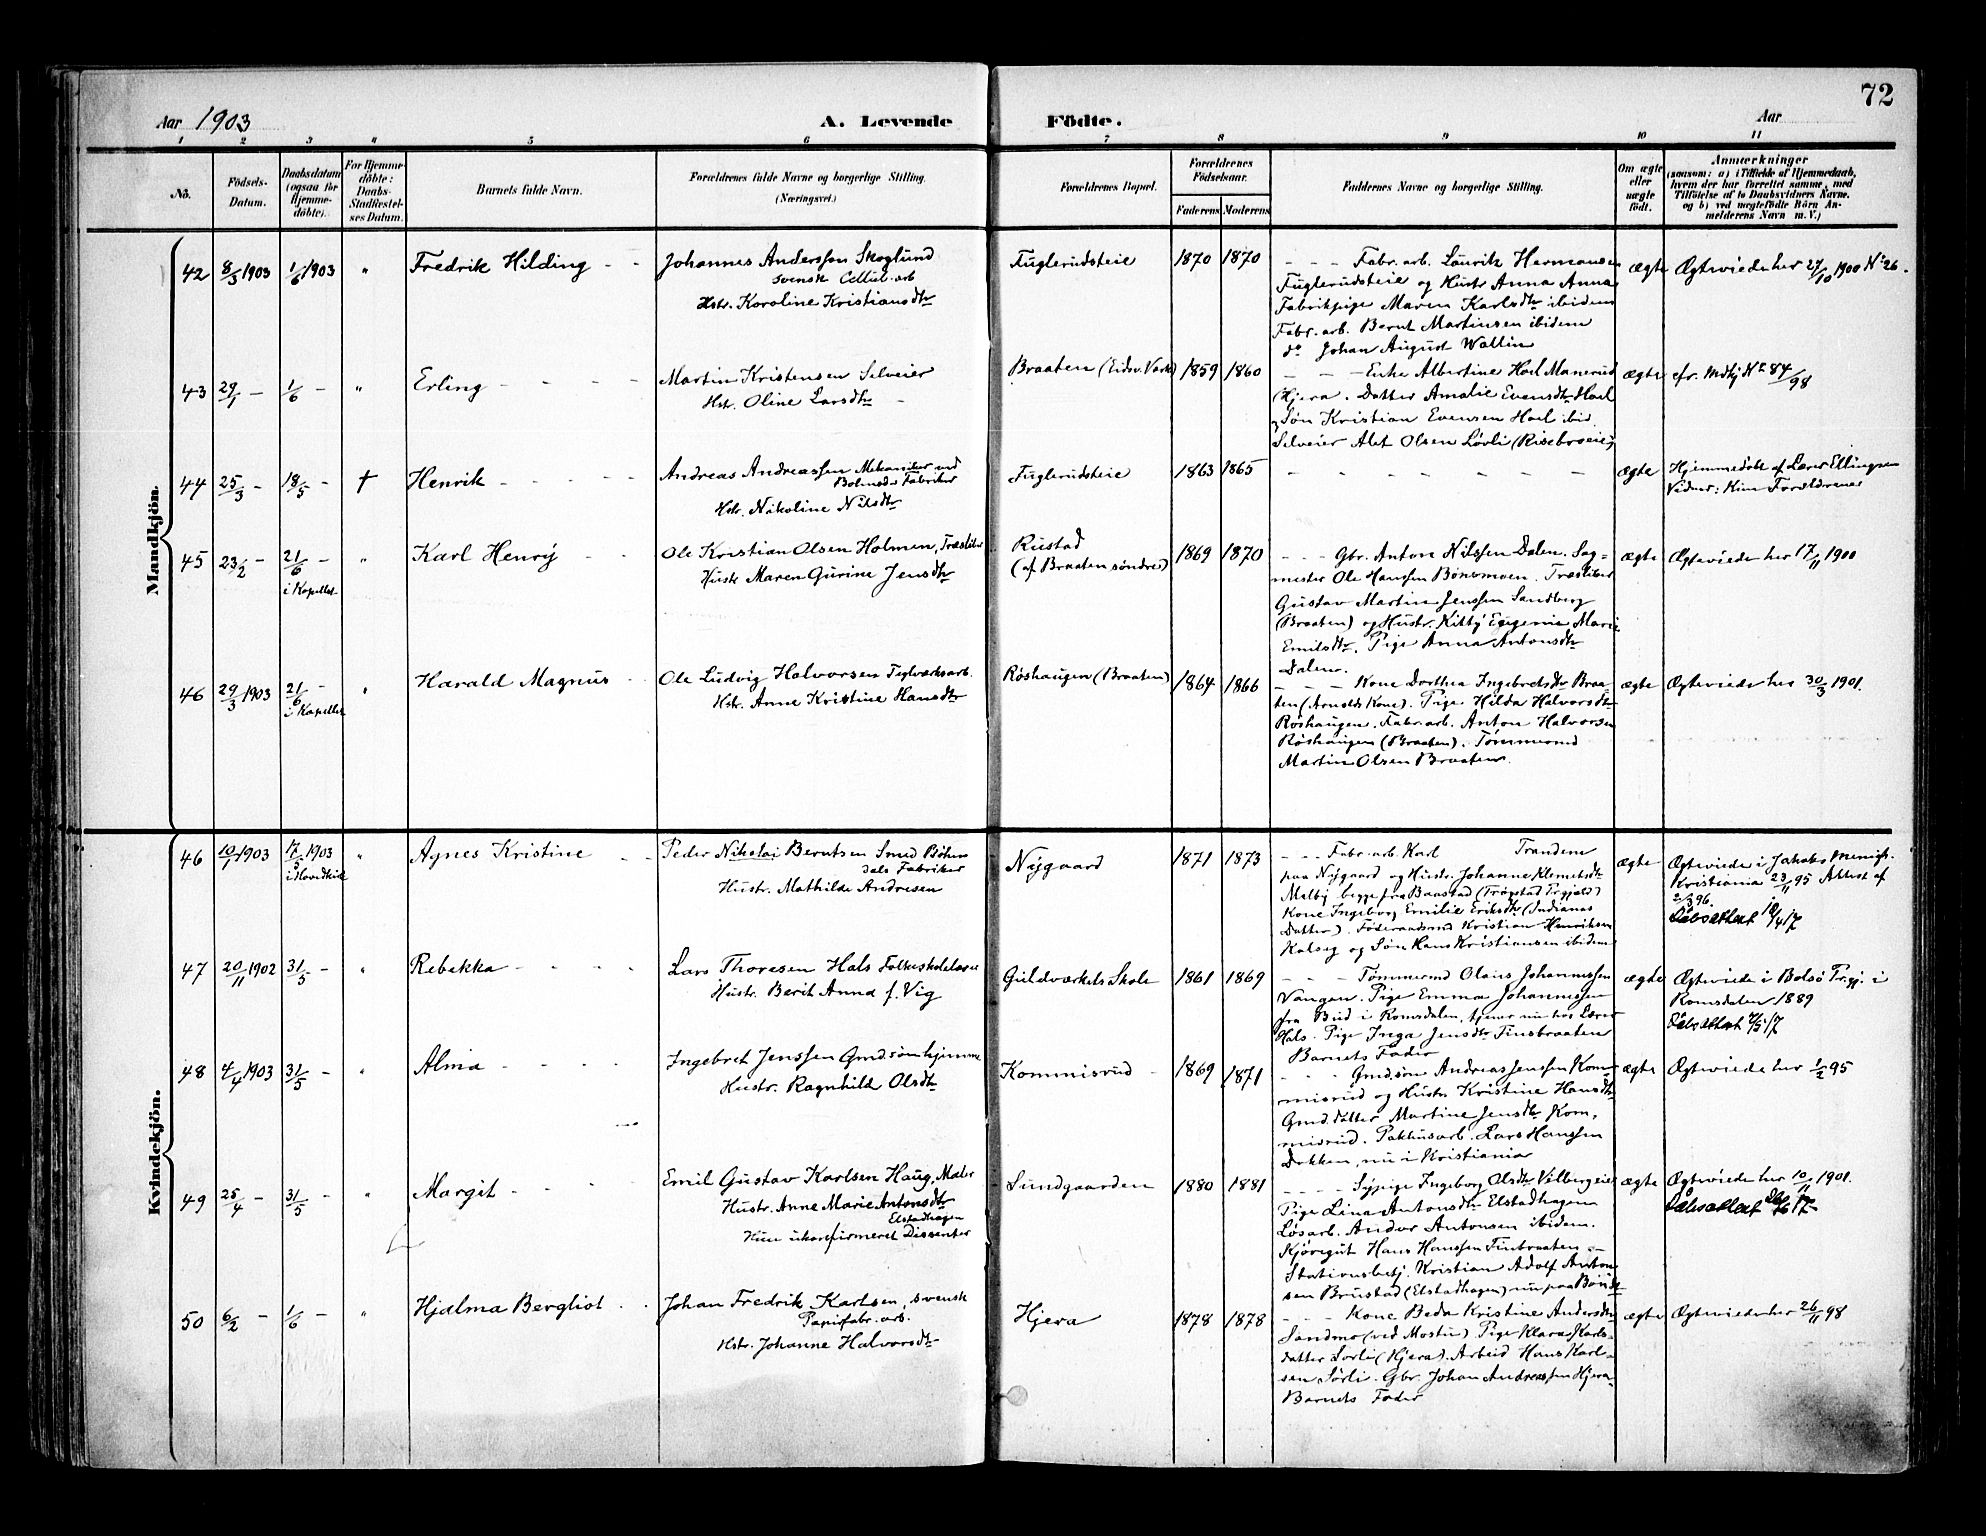 72
Aar 1903
A. Levende Födte.
Aar
1 2 3 " 5 6 7 8 9 10 11
No.
Födsels-Datum.
Daabsdatum (ogsaa for Hjemmedöbte).
For Hjemmedöbte: Daabs-Stadfestelses Datum.
Barnets fulde Navn.
Forældrenes fulde Navne og borgerlige Stilling. (Næringsvei.)
Forældrenes Bopæl.
Forældrenes Födselsaar.
Faderens Moderens
Faddernes Navne og borgerlige Stilling.
Om ægte eller uægte födt.
Anmærkninger
(saasom: a) i Tilfælde af Hjemmedaab, hvem der har forrettet samme, med Tilföielse af to Daabsvidners Navne, og b) ved uægtefödte Börn Anmelderens Navn m. V.)
Mandkjön.
42 8/3 1903 1/6 1903 " Fredrik Hilding - -
Johannes Anderssen Skoglund
svensk Cellul. arb
Hstr. Karoline Kristiansdtr
Fuglerudsteie 1870 1870
- - - Fabr. arb. Laurik Hermansen
Fuglerudsteie og Hustr Anna Anna
Fabrikpige Maren Karlsdtr ibidem
Fabr. arb. Bernt Martinsen ibidem
do Johan August Wallin
ægte Ægteviede her 27/10 1900 No 26.
43 29/1 - 1/6 - " Erling - - - -
Martin Kristensen Selveier
Hstr. Oline Larsdtr -
Braaten (Eidsv. Værk) 1859 1860
- - - Enke Albertine Hoel Manerud
(Hjera. Datter Amalie Evensdtr Hoel
Søn Kristian Evensen Hoel ibid.
Selveier Alet Olsen Løvli (Risebroeie)
ægte cfr. Mdkj No 84/98
44 25/3 - 18/5 - † Henrik - - - -
Andreas Andreassen Mekaniker ved
Bøhnsdr Fabriker
Hstr. Nikoline Nilsdtr
Fuglerudsteie 1863 1865
- - - - - - -
ægte Hjemmedøbt af Lærer Ellingsen
Vidner: Kun Forældrenes
45 23/2 - 21/6 - i Kapellet " Karl Henry - -
Ole Kristian Olsen Holmen, Træsliber
Hustr Maren Gurine Jensdtr
Rustad
(af Braaten søndre) 1869 1870
- - - Gbr. Anton Nilssen Dalen. Sag=
mester Ole Hanssen Bønsmoen. Træsliber
Gustav Martin Jenssen Sandberg
(Braaten) og Hustr. Kitty Eugenie Marie
Emilsdtr. Pige Anna Antonsdtr
Dalen.
ægte Ægteviede her 17/11 1900
46 29/3 1903 21/6 - i Kapellet " Harald Magnus -
Ole Ludvig Halvorsen Teglværksarb.
Hstr. Anne Kristine Hansdtr
Røshaugen (Braaten) 1864 1866
- - - Kone Dorthea Ingebretsdtr Braa=
ten (Arnolds Kone). Pige Hilda Halvorsdtr
Røshaugen. Fabr. arb. Anton Halvorsen
Røshaugen (Braaten). Tømmermd
Martin Olsen Braaten.
ægte Ægteviede her 30/3 1901.
Kvindekjön.
46 10/1 1903 17/5 1903 i Hovedkirk " Agnes Kristine - -
Peder Nikolai Berntsen Smed Bøhns
dals Fabriker
Hustr. Mathilde Andresen
Nygaard 1871 1873
- - - Fabr. arb. Karl Trandem
paa Nygaard og Hustr. Johanne Klemetsdtr
Malby begge fra Baastad (Trøgstad Prgjeld)
Kone Ingeborg Emilie Eriksdtr (Indianas
Datter). Føderaadsmd Kristian Henriksen
Kolseg og Søn Hans Kristiansen ibidem
ægte Ægteviede i Jakobs Menigh.
Kristiania 23/11 95 Attest af
2/3 96.
Dåbsattest 10/4 17
47 20/11 1902 31/5 - " Rebekka - - - -
Lars Thoresen Hals Folkeskolelærer
Hustr. Berit Anna f. Vig
Guldværkets Skole 1861 1869
- - - Tømmermd Olaus Johannessen
Vangen. Pige Emma Johannessen
fra Bud i Romsdalen, tjener nu hos Lærer
Hals. Pige Inga Jensdtr Finsbraaten
Barnets Fader
ægte Ægteviede i Bolsø Prgj. i
Romsdalen 1889
Dåbsattest 7/5 17
48 4/4 1903 31/5 - " Alma - - - -
Ingebret Jenssen Gmd. søn hjemme
Hustr. Ragnhild Olsdtr
Kommisrud - 1869 1871
- - - Gmd. søn Andreas Jenssen Kom=
misrud og Hustr Kristine Hansdtr
Gmd. datter Martine Jensdtr Kom,
misrud. Pakhusarb. Lars Hanssen
Dokken, nu i Kristiania
ægte Ægteviede her 1/2 95
49 25/4 - 31/5 - " Margit - - -
Emil Gustav Karlsen Haug, Maler
Hustr. Anne Marie Antonsdtr
Elstadhagen
Hun ukonfirmeret Dissenter
Sundgaarden 1880 1881
- - - Sypige Ingeborg Olsdtr Vilbergeie
Pige Lina Antonsdtr Elstadhagen
Løsarb. Andor Antonsen ibidem.
Kjøregut Hans Hanssen Finbraaten -
Stationsbetj. Kristian Adolf Anton
sen Brustad (Elstadhagen) nu paa Bøn
ægte Ægteviede her 10/11 1901.
Dåbsattest 17
50 6/2 - 1/6 - " Hjalma Bergliot -
Johan Fredrik Karlsen, svensk
Papirfabr. arb.
Hstr. Johanne Halvorsdtr
Hjera 1878 1878
- - - Kone Beda Kristine Andersdtr
Sandmo (ved Mostu) Pige Klara Karls-
datter Sørli (Hjera). Arbeid Hans Karl-
sen Sørli. Gbr. Johan Andreassen Hjera
Barnets Fader
ægte Ægteviede her 26/11 98